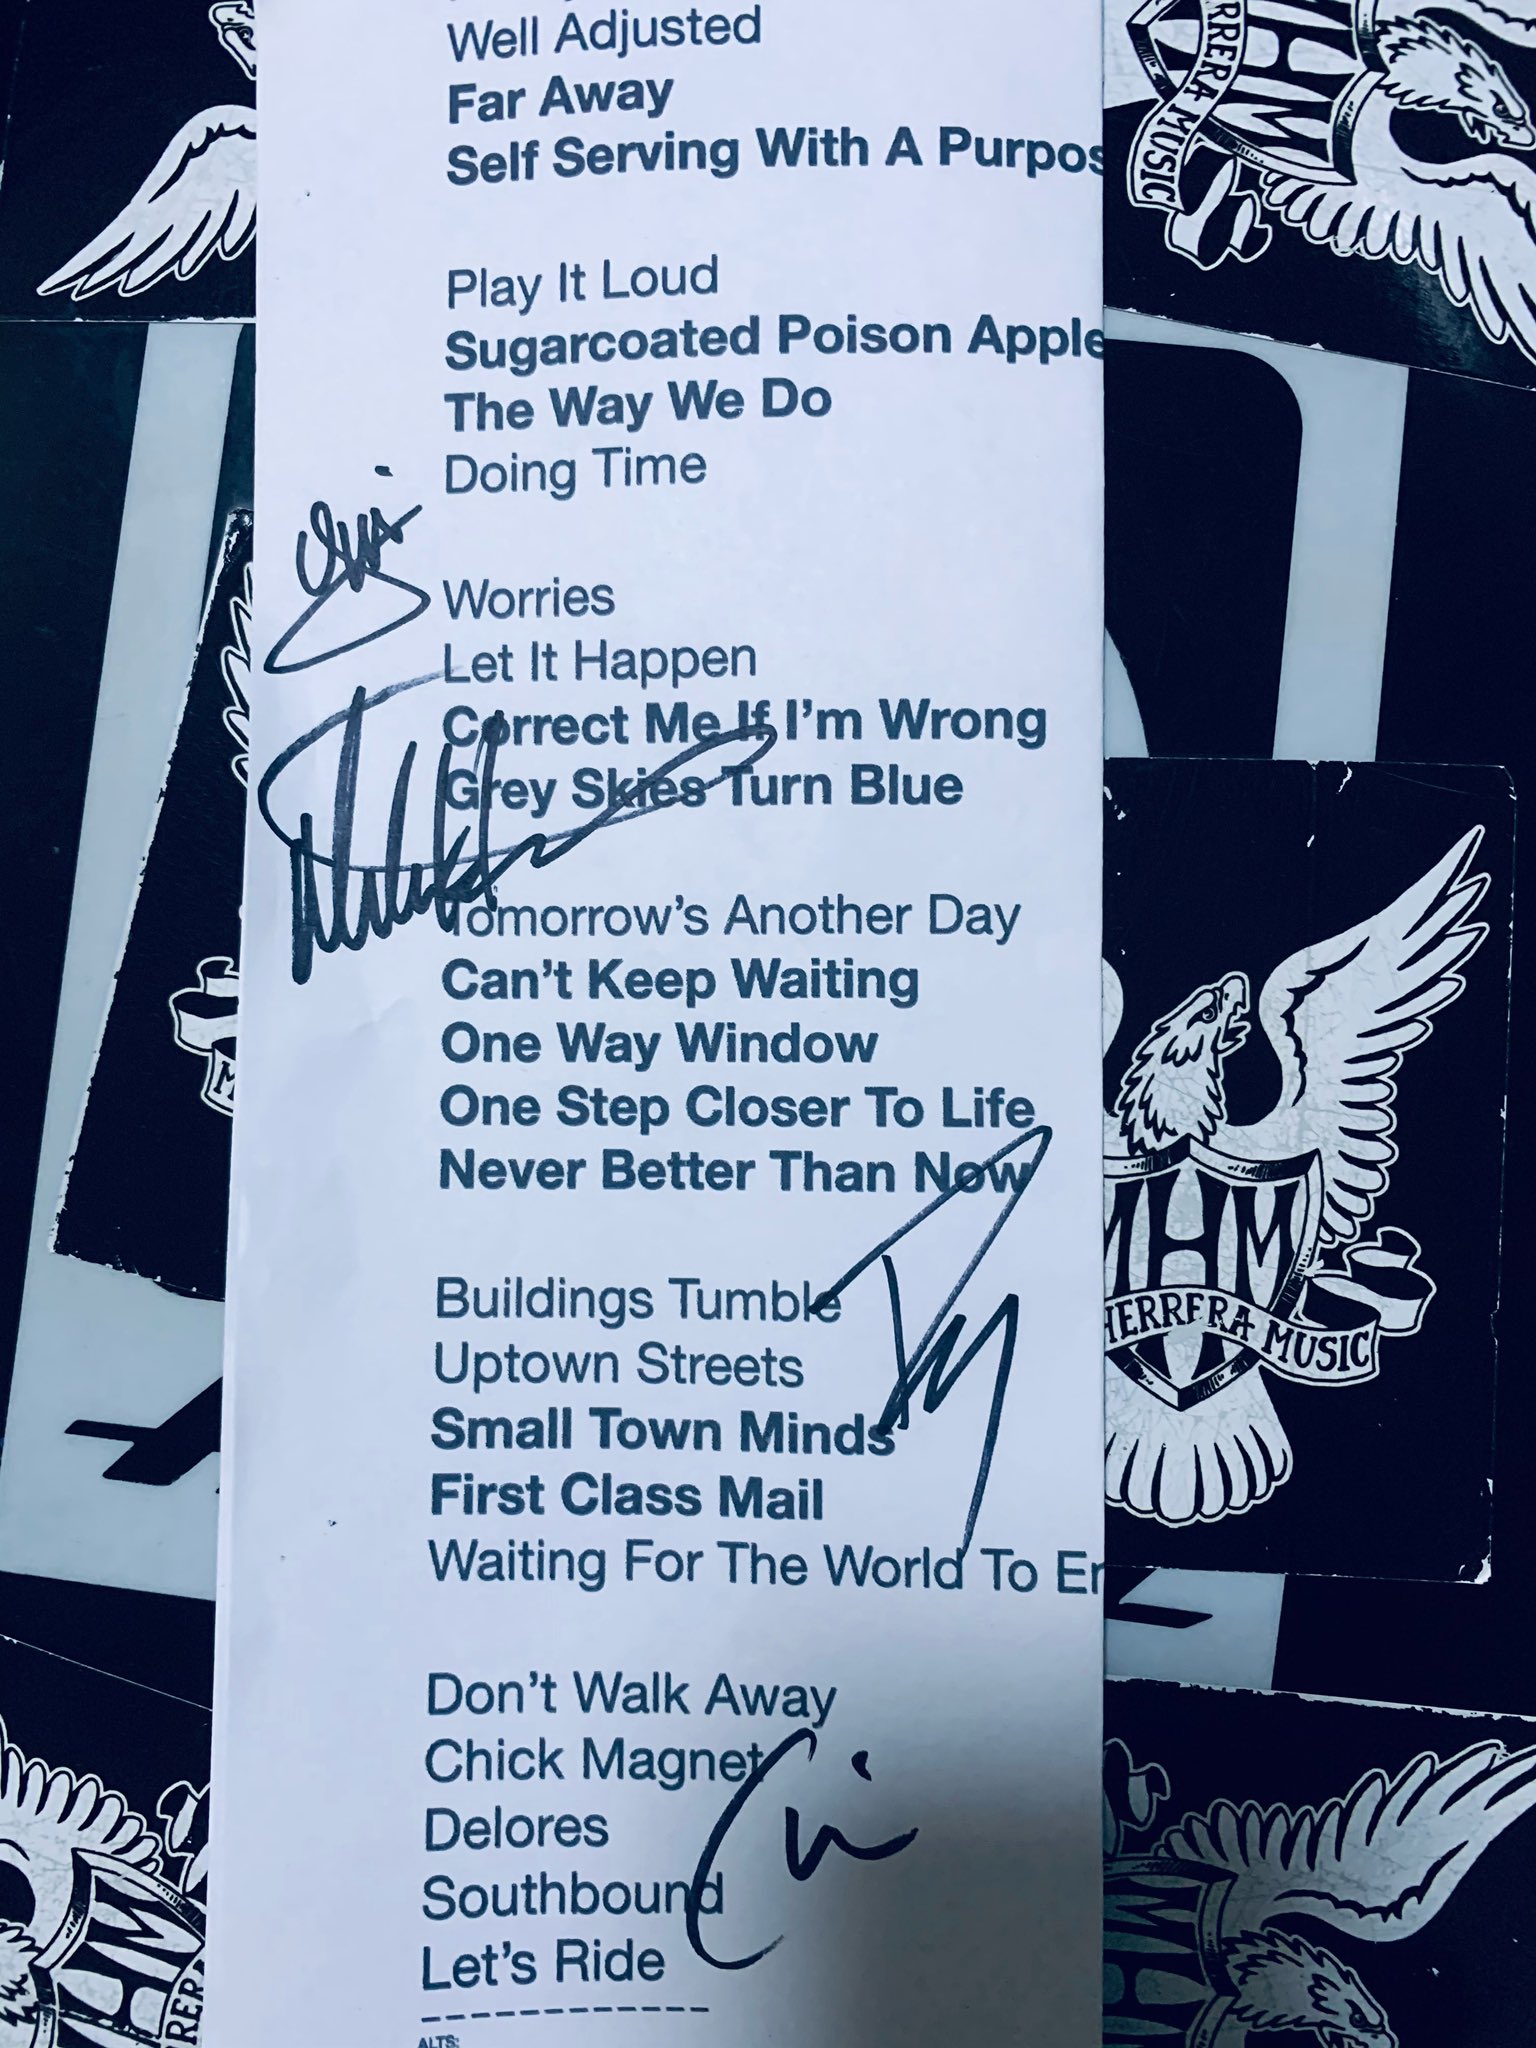 Well Adjusted
Far Away
Self Serving With A Purpos
Play It Loud
Sugarcoated Poison Apple
The Way We Do
Doing Time
Worries
Let It Happen
Correct Me If I'm Wrong
Grey Skies Turn Blue
Tomorrow's Another Day
Can't Keep Waiting
One Way Window
One Step Closer To Life
Never Better Than Now
Buildings Tumble
Uptown Streets
Small Town Minds
First Class Mail
Waiting For The World To En
Don't Walk Away
Chick Magnet
Delores
Southbound
Let's Ride
ALTS:
RRERA MUSIC
HM
MHM
HERRERA MUSIC
HM
RER